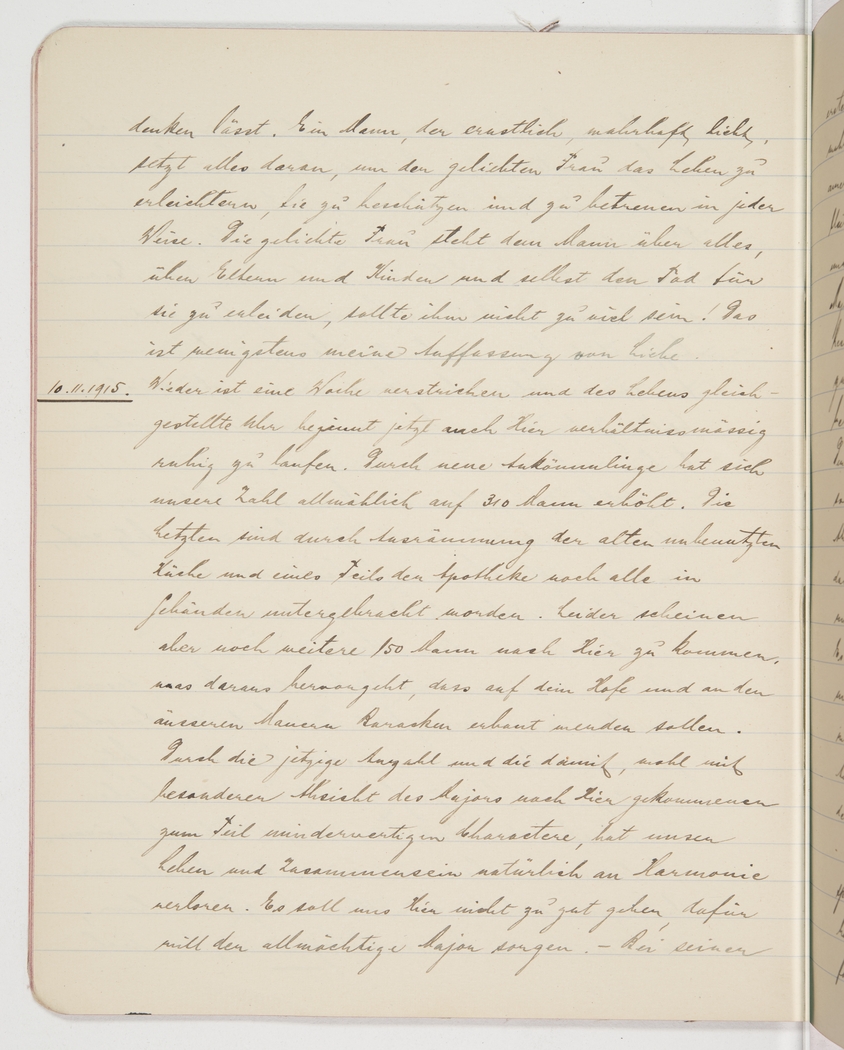 denken lässt. Ein Mann, der ernstlich, wahrhaft, liebt,
setzt alles daran, um der geliebten Frau das Leben zu
erleichtern, sie zu beschützen und zu betreuen in jeder
Weise. Die geliebte Frau steht dem Mann über alles,
über Eltern und Kinder und selbst den Tod für
sie zu erleiden, sollte ihm nicht zu viel sein! Das
ist wenigstens meine Auffassung von Liebe.
10.11.1915. Wieder ist eine Woche verstrichen und des Lebens gleich-
gestellte Uhr beginnt jetzt auch Hier verhältnissmässig
ruhig zu laufen. Durch neue Ankömmlinge hat sich
unsere Zahl allmählich auf 310 Mann erhöht. Die
Letzten sind durch Ausräumung der alten unbenutzten
Küche und eines Teils der Apotheke noch alle in
Gebäuden untergebracht worden. Leider scheinen
aber noch weitere 150 Mann nach Hier zu kommen,
was daraus hervorgeht, dass auf dem Hofe und an den
äusseren Mauern Baracken erbaut werden sollen.
Durch die jetzige Anzahl und die damit, wohl mit
besonderer Absicht des Majors nach Hier gekommenen
zum Teil minderwertigen Charactere, hat unser
Leben und Zusammensein natürlich an Harmonie
verloren. Es soll uns Hier nicht zu gut gehen, dafür
will der allmächtige Major sorgen. – Bei seiner